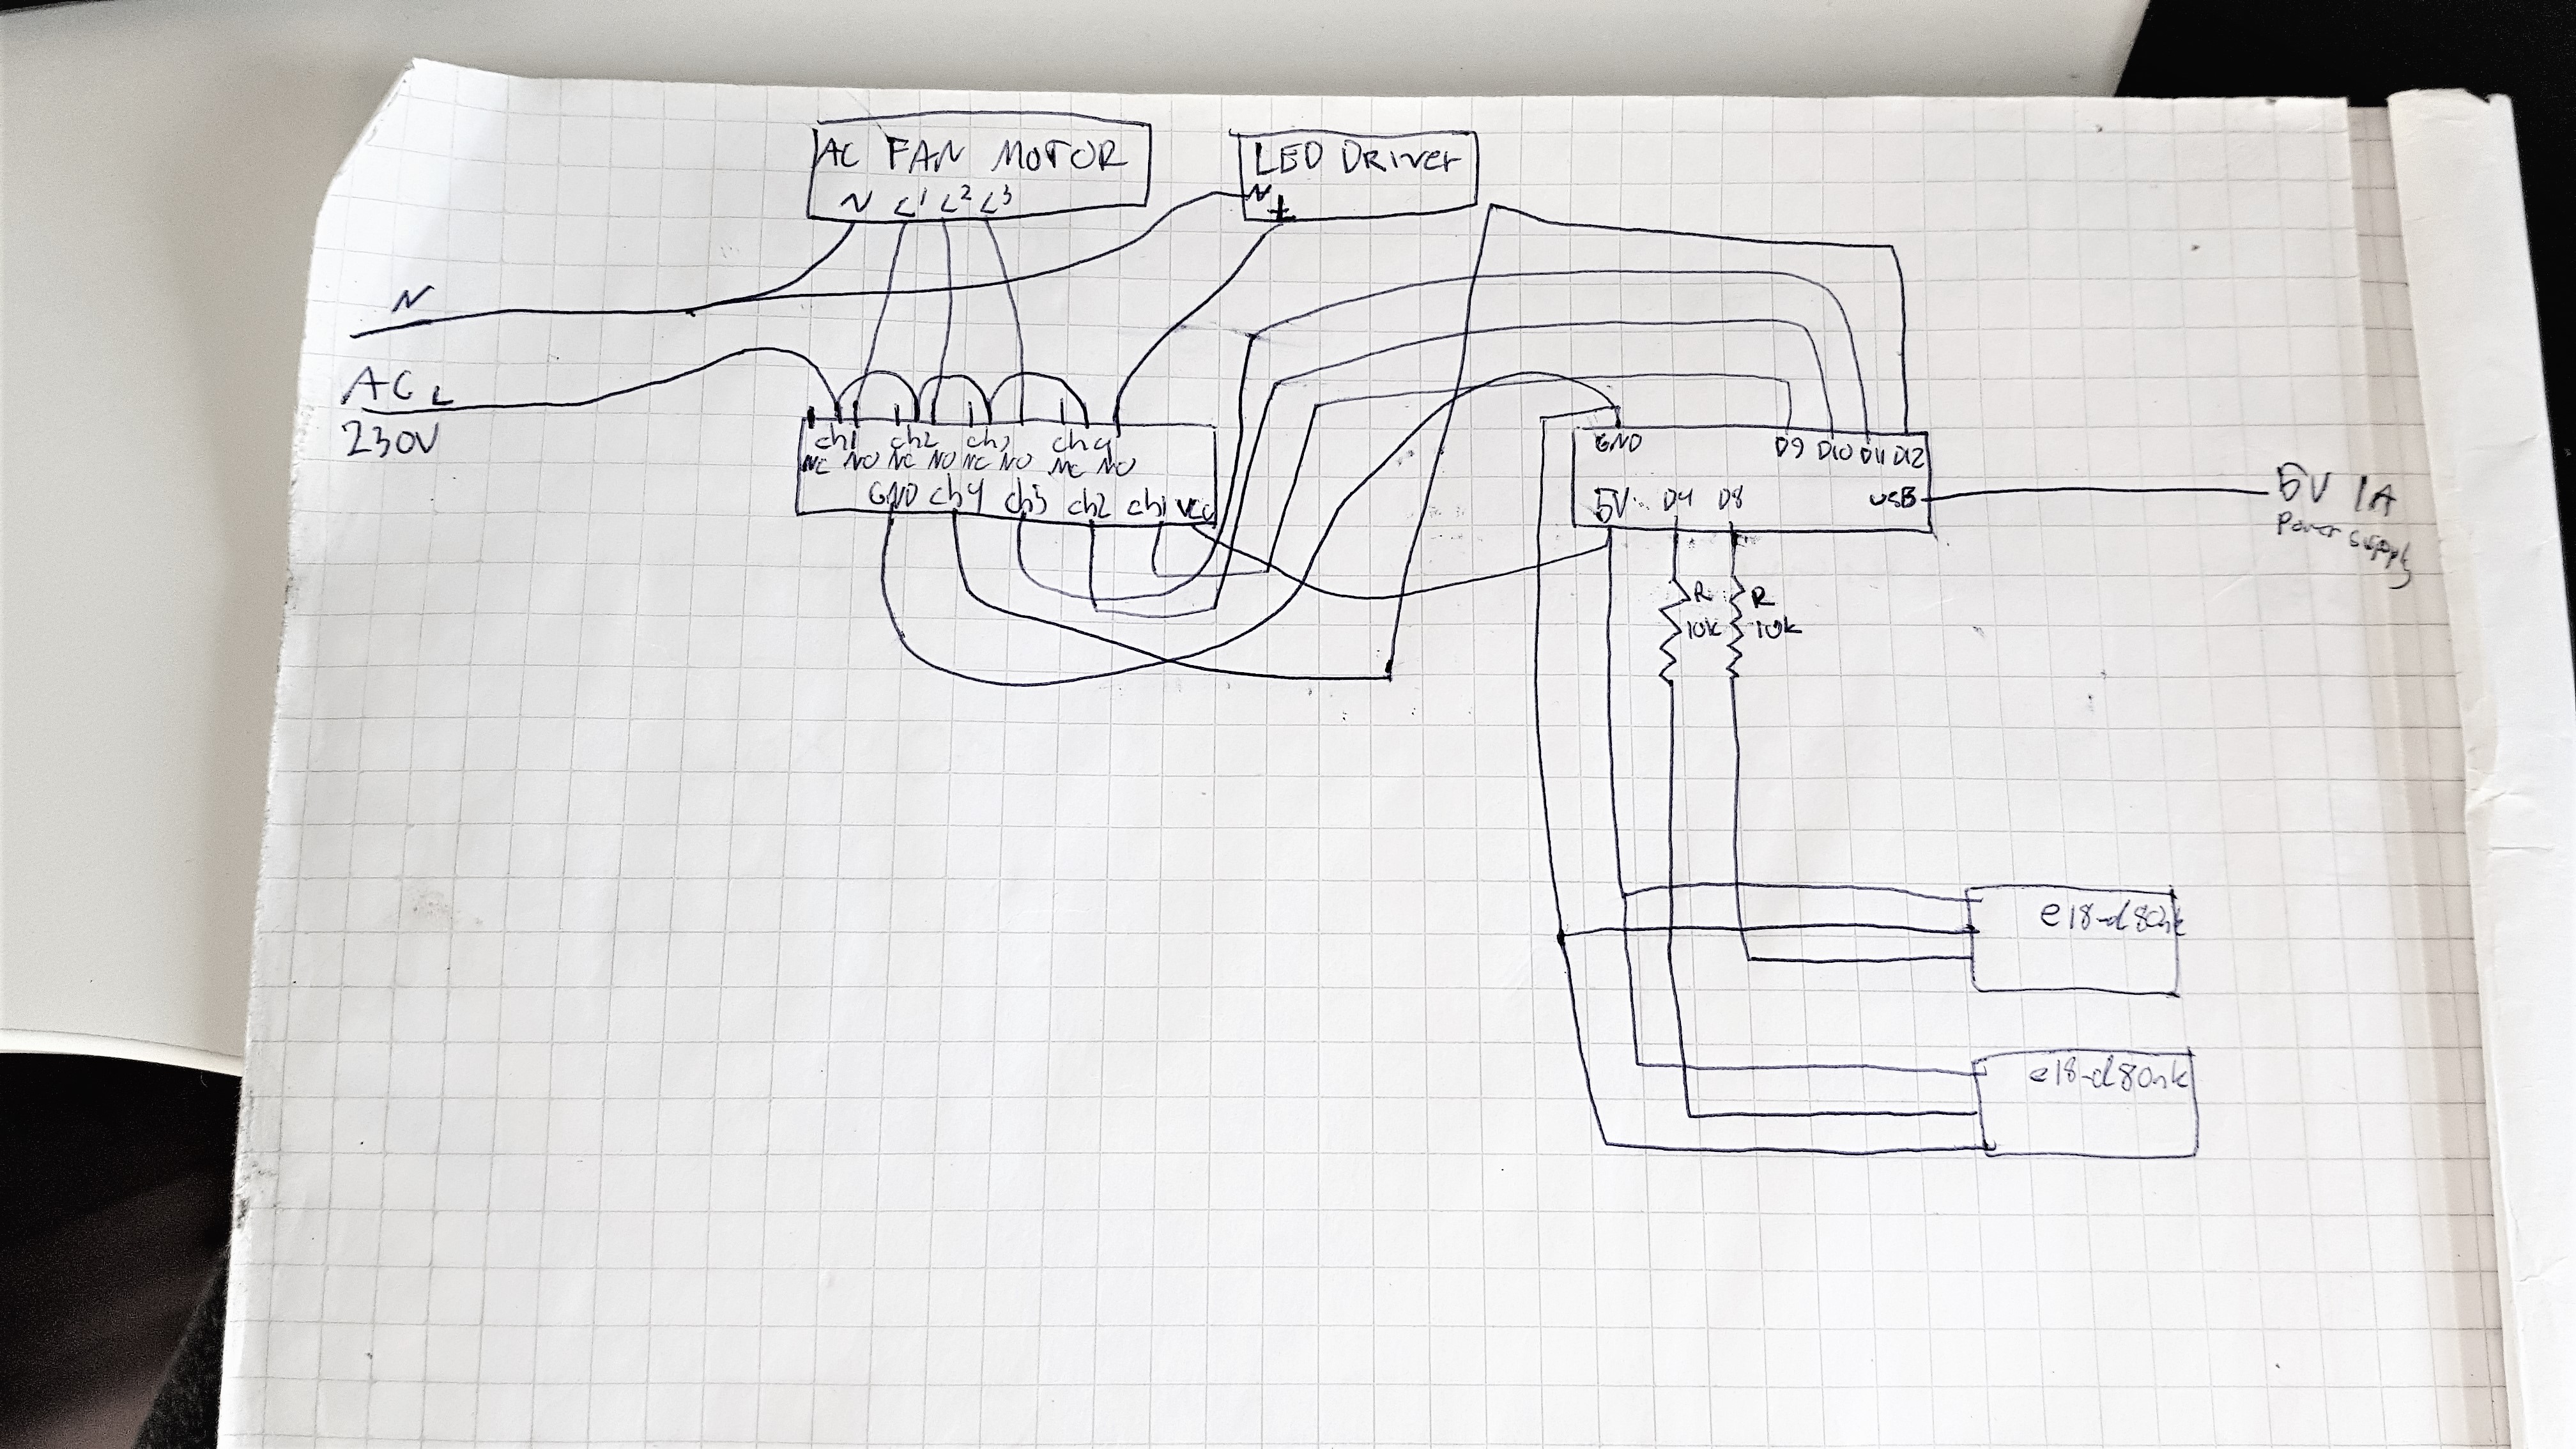 AC FAN MOTOR
N L1 L2 L3
LED Driver
N L
N
AC L
230V
ch1 ch2 ch3 ch4
NC NO NC NO NC NO NC NO
GND ch4 ch3 ch2 ch1 VCC
GND D9 D10 D11 D12
5V D4 D8 USB
5V 1A
Power supply
R
10k
R
10k
e18-d80nk
e18-d80nk